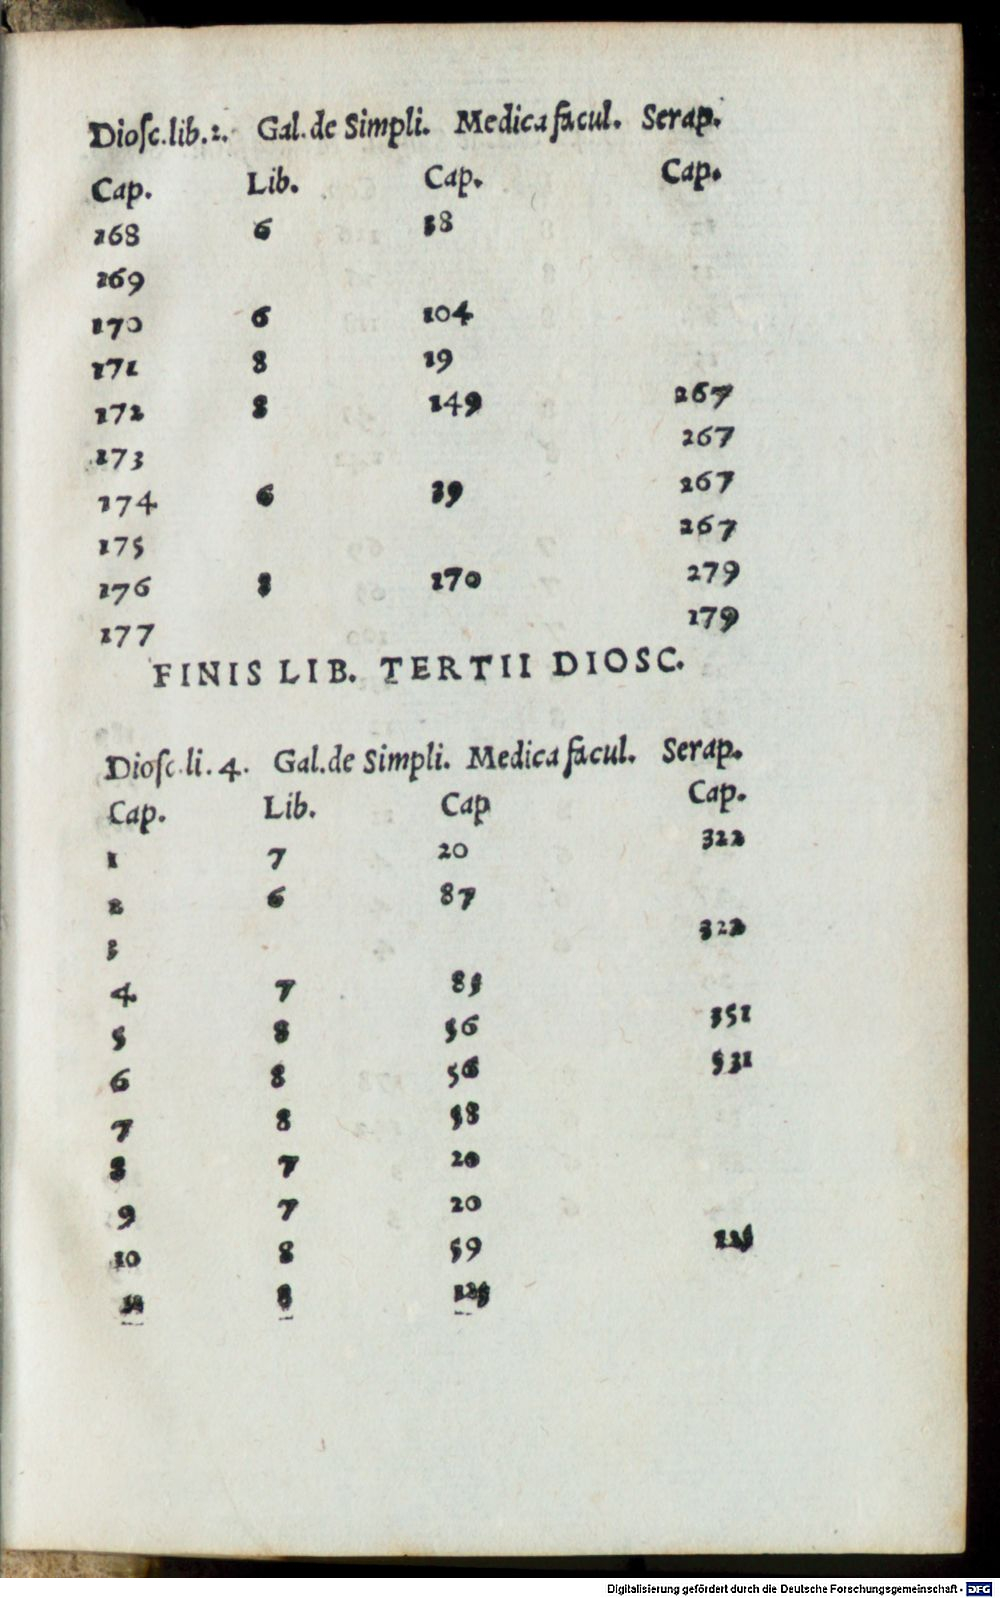 Diosc.lib.2. Gal.de Simpli. Medica facul. Serap.
Cap. Lib. Cap. Cap.
168 6 38
169
170 6 104
171 8 19
172 8 149 267
173 267
174 6 39 267
175 267
176 8 170 279
177 179
FINIS LIB. TERTII DIOSC.
Diosc.li.4. Gal.de Simpli. Medica facul. Serap.
Cap. Lib. Cap Cap.
1 7 20 322
2 6 87
3 322
4 7 85
5 8 56 351
6 8 56 531
7 8 58
8 7 20
9 7 20
10 8 59 125
11 8 125
Digitalisierung gefördert durch die Deutsche Forschungsgemeinschaft - DFG